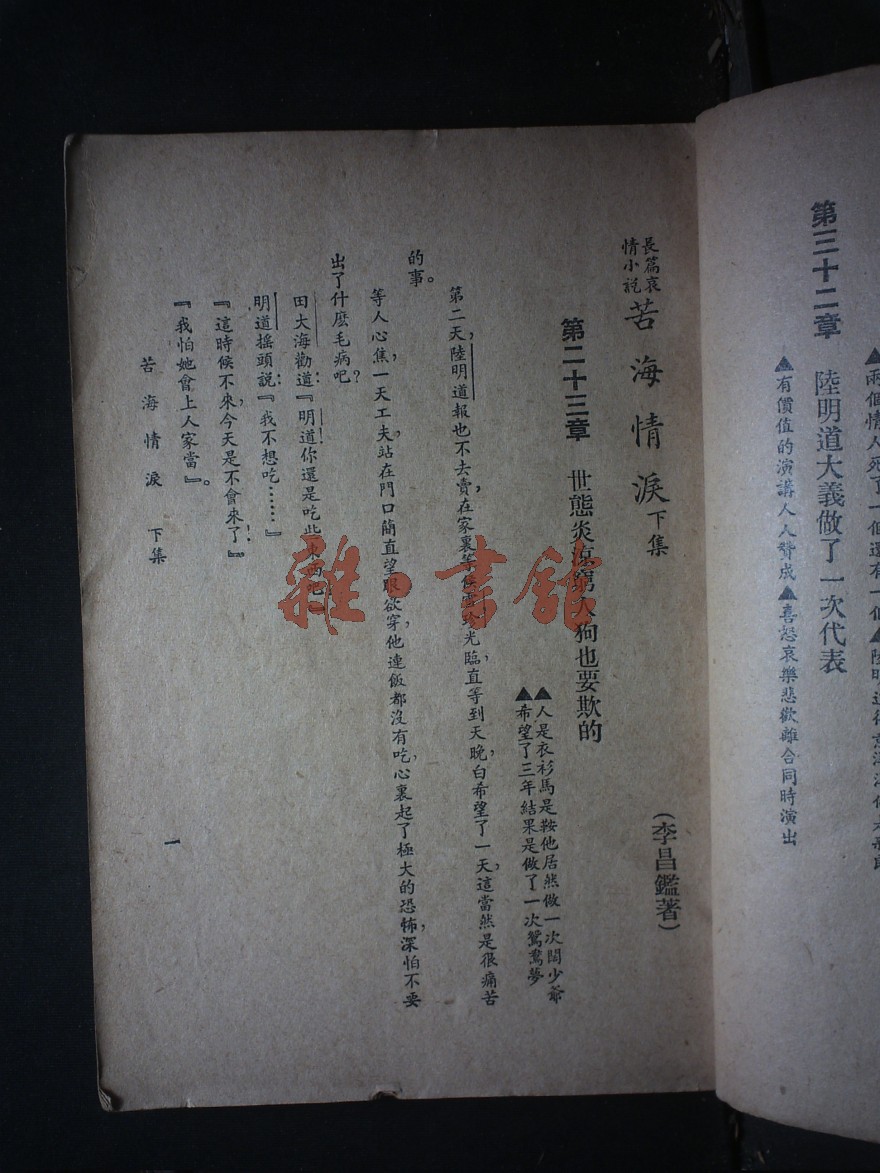 第三十二章 陸明道大義做了一次代表
▲有價值的演講人人贊成▲喜怒哀樂悲歡離合同時演出
長篇哀情小說 苦海情淚 下集
(李昌鑑著)
第二十三章 世態炎涼窮人狗也要欺的
▲人是衣衫馬是鞍他居然做一次闊少爺
▲希望了三年結果是做了一次鴛鴦夢
第二天,陸明道報也不去賣,在家裏等候雪珍光臨,直等到天晚,白希望了一天,這當然是很痛苦
的事。
等人心焦,一天工夫,站在門口簡直望眼欲穿,他連飯都沒有吃,心裏起了極大的恐怖,深怕不要
出了什麽毛病吧?
田大海勸道:『明道!你還是吃些東西吧!』
明道搖頭說:『我不想吃……』
『這時候不來,今天是不會來了!』
『我怕她會上人家當』。
苦海情淚 下集
一
雜·書館